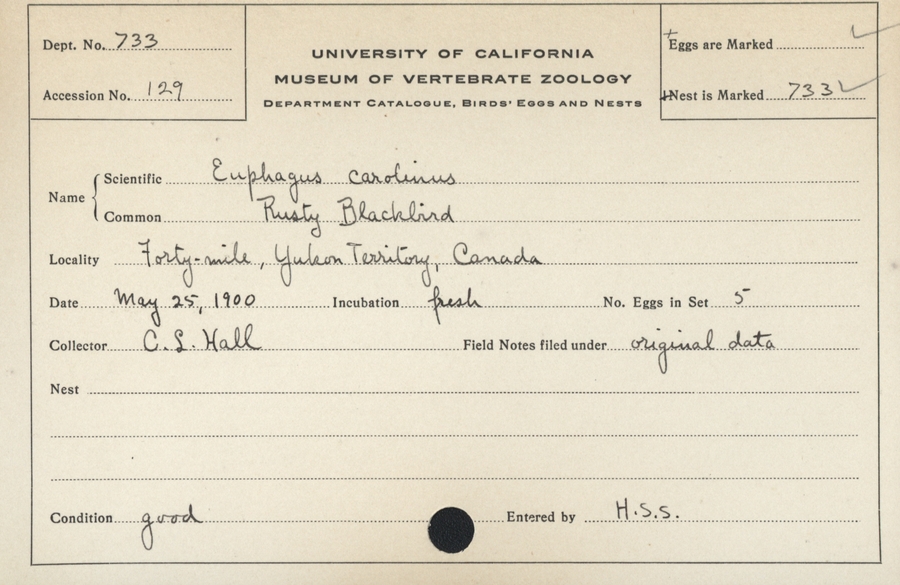 Dept. No. 733
Accession No. 129
UNIVERSITY OF CALIFORNIA
MUSEUM OF VERTEBRATE ZOOLOGY
DEPARTMENT CATALOGUE, BIRDS' EGGS AND NESTS
Eggs are Marked ✓
Nest is Marked 733 ✓
Name { Scientific Euphagus carolinus
Common Rusty Blackbird
Locality Forty-mile, Yukon Territory, Canada
Date May 25, 1900 Incubation fresh No. Eggs in Set 5
Collector C. L. Hall Field Notes filed under original data
Nest
Condition good Entered by H.S.S.